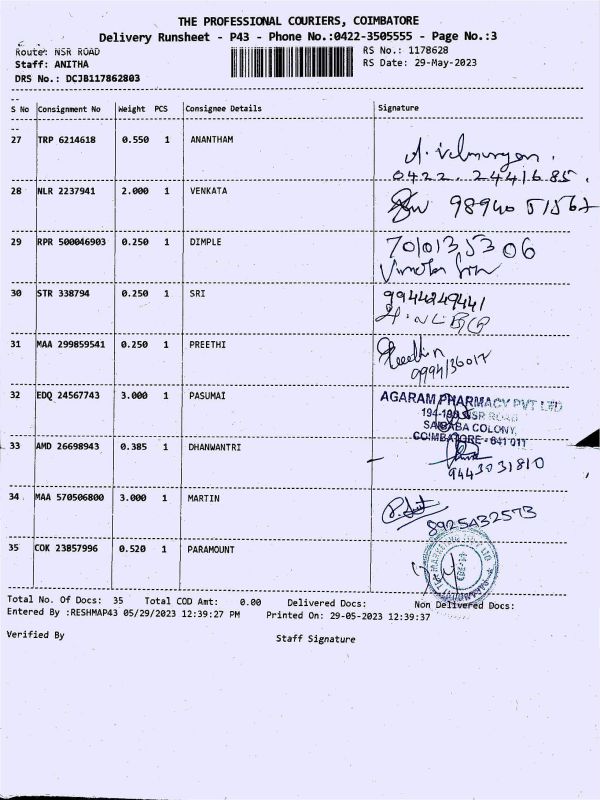 THE PROFESSIONAL COURIERS, COIMBATORE
Delivery Runsheet - P43 - Phone No.:0422-3505555 - Page No.:3
Route: NSR ROAD
RS No.: 1178628
Staff: ANITHA
RS Date: 29-May-2023
DRS No.: DCJB117862803
S No Consignment No Weight PCS Consignee Details Signature
27 TRP 6214618 0.550 1 ANANTHAM
0422. 2441685.
28 NLR 2237941 2.000 1 VENKATA
98940 51567
29 RPR 500046903 0.250 1 DIMPLE 7010135306
30 STR 338794 0.250 1 SRI 9944249441
31 MAA 299859541 0.250 1 PREETHI
9994136017
32 EDQ 24567743 3.000 1 PASUMAI AGARAM PHARMACY PVT LTD
NSR ROAD
SAIBABA COLONY,
COIMBATORE - 641 011
33 AMD 26698943 0.385 1 DHANWANTRI
9443031810
34 MAA 570506800 3.000 1 MARTIN
8925432573
35 COK 23857996 0.520 1 PARAMOUNT
Total No. Of Docs: 35 Total COD Amt: 0.00 Delivered Docs: Non Delivered Docs:
Entered By :RESHMAP43 05/29/2023 12:39:27 PM Printed On: 29-05-2023 12:39:37
Verified By Staff Signature